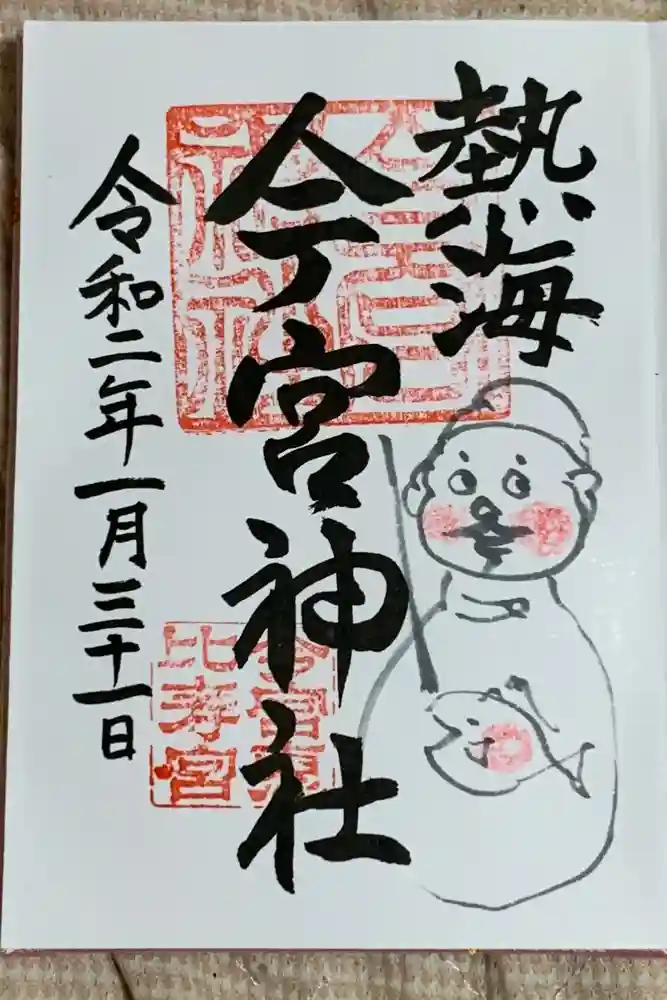 熱海
今宮神社
令和二年一月三十一日
今宮恵
比寿宮